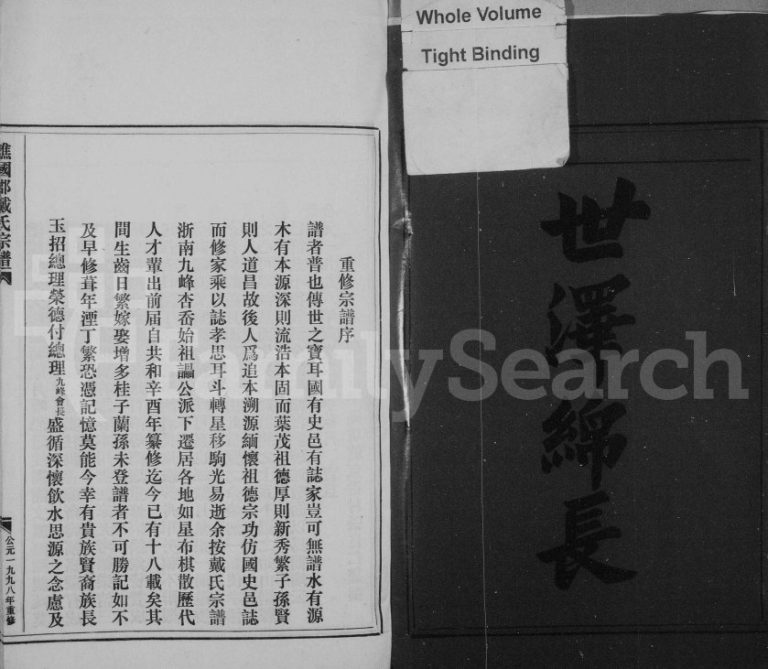 Whole Volume
Tight Binding
世澤綿長
重修宗譜序
譜者普也傳世之寶耳國有史邑有誌家豈可無譜水有源
木有本源深則流浩本固而葉茂祖德厚則新秀繁子孫賢
則人道昌故後人爲追本溯源緬懷祖德宗功仿國史邑誌
而修家乘以誌孝思耳斗轉星移駒光易逝余按戴氏宗譜
浙南九峰杏岙始祖諨公派下遷居各地如星布棋散歷代
人才輩出前届自共和辛酉年纂修迄今已有十八載矣其
間生齒日繁嫁娶增多桂子蘭孫未登譜者不可勝記如不
及早修葺年湮丁繁恐憑記憶莫能今幸有貴族賢裔族長
玉招總理榮德付總理九峰會長盛循深懷飲水思源之念慮及
譙國郡戴氏宗譜
公元一九九八年重修
FamilySearch